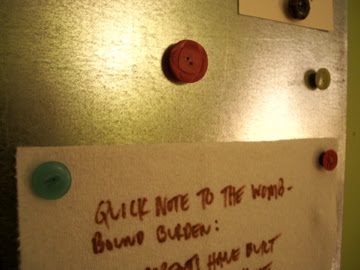 QUICK NOTE TO THE WOMB-
BOUND BURDEN:
HAVE BUILT